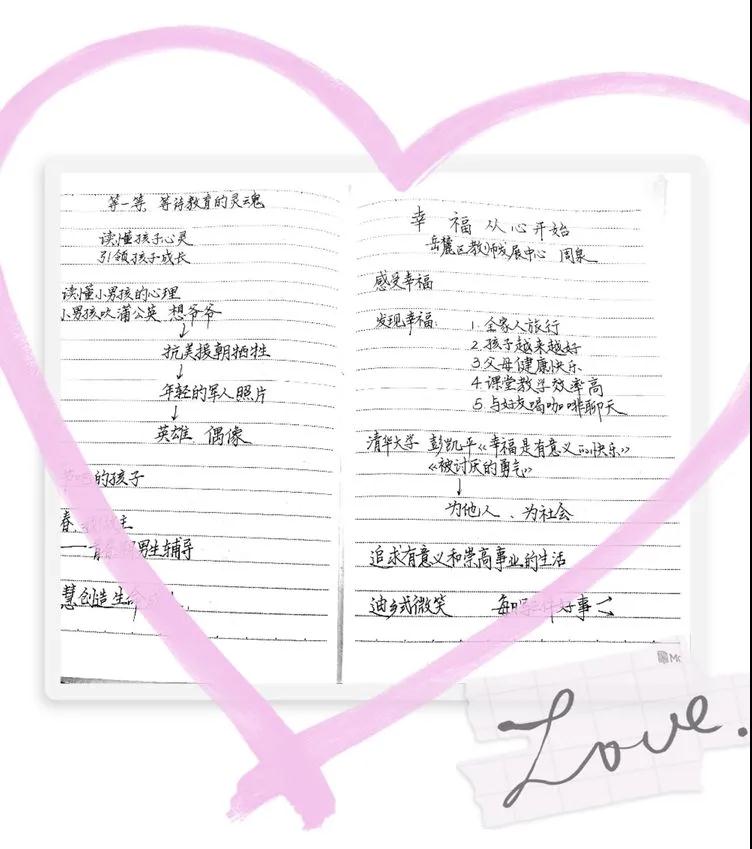 等一等,等待教育的灵魂
读懂孩子心灵
引领孩子成长
读懂小男孩的心理
小男孩吹蒲公英 想爷爷
↓
抗美援朝牺牲
↓
年轻的军人照片
↓
英雄 偶像
的孩子
春
男生辅导
慧创造生命
幸 福 从心开始
岳麓区教师发展中心 周泉
感受幸福
发现幸福: 1.全家人旅行
2.孩子越来越好
3.父母健康快乐
4.课堂教学效率高
5.与好友喝咖啡聊天
清华大学 彭凯平《幸福是有意义的快乐》
《被讨厌的勇气》
↓
为他人、为社会
追求有意义和崇高事业的生活
迪乡式微笑 每 三件好事
Love.